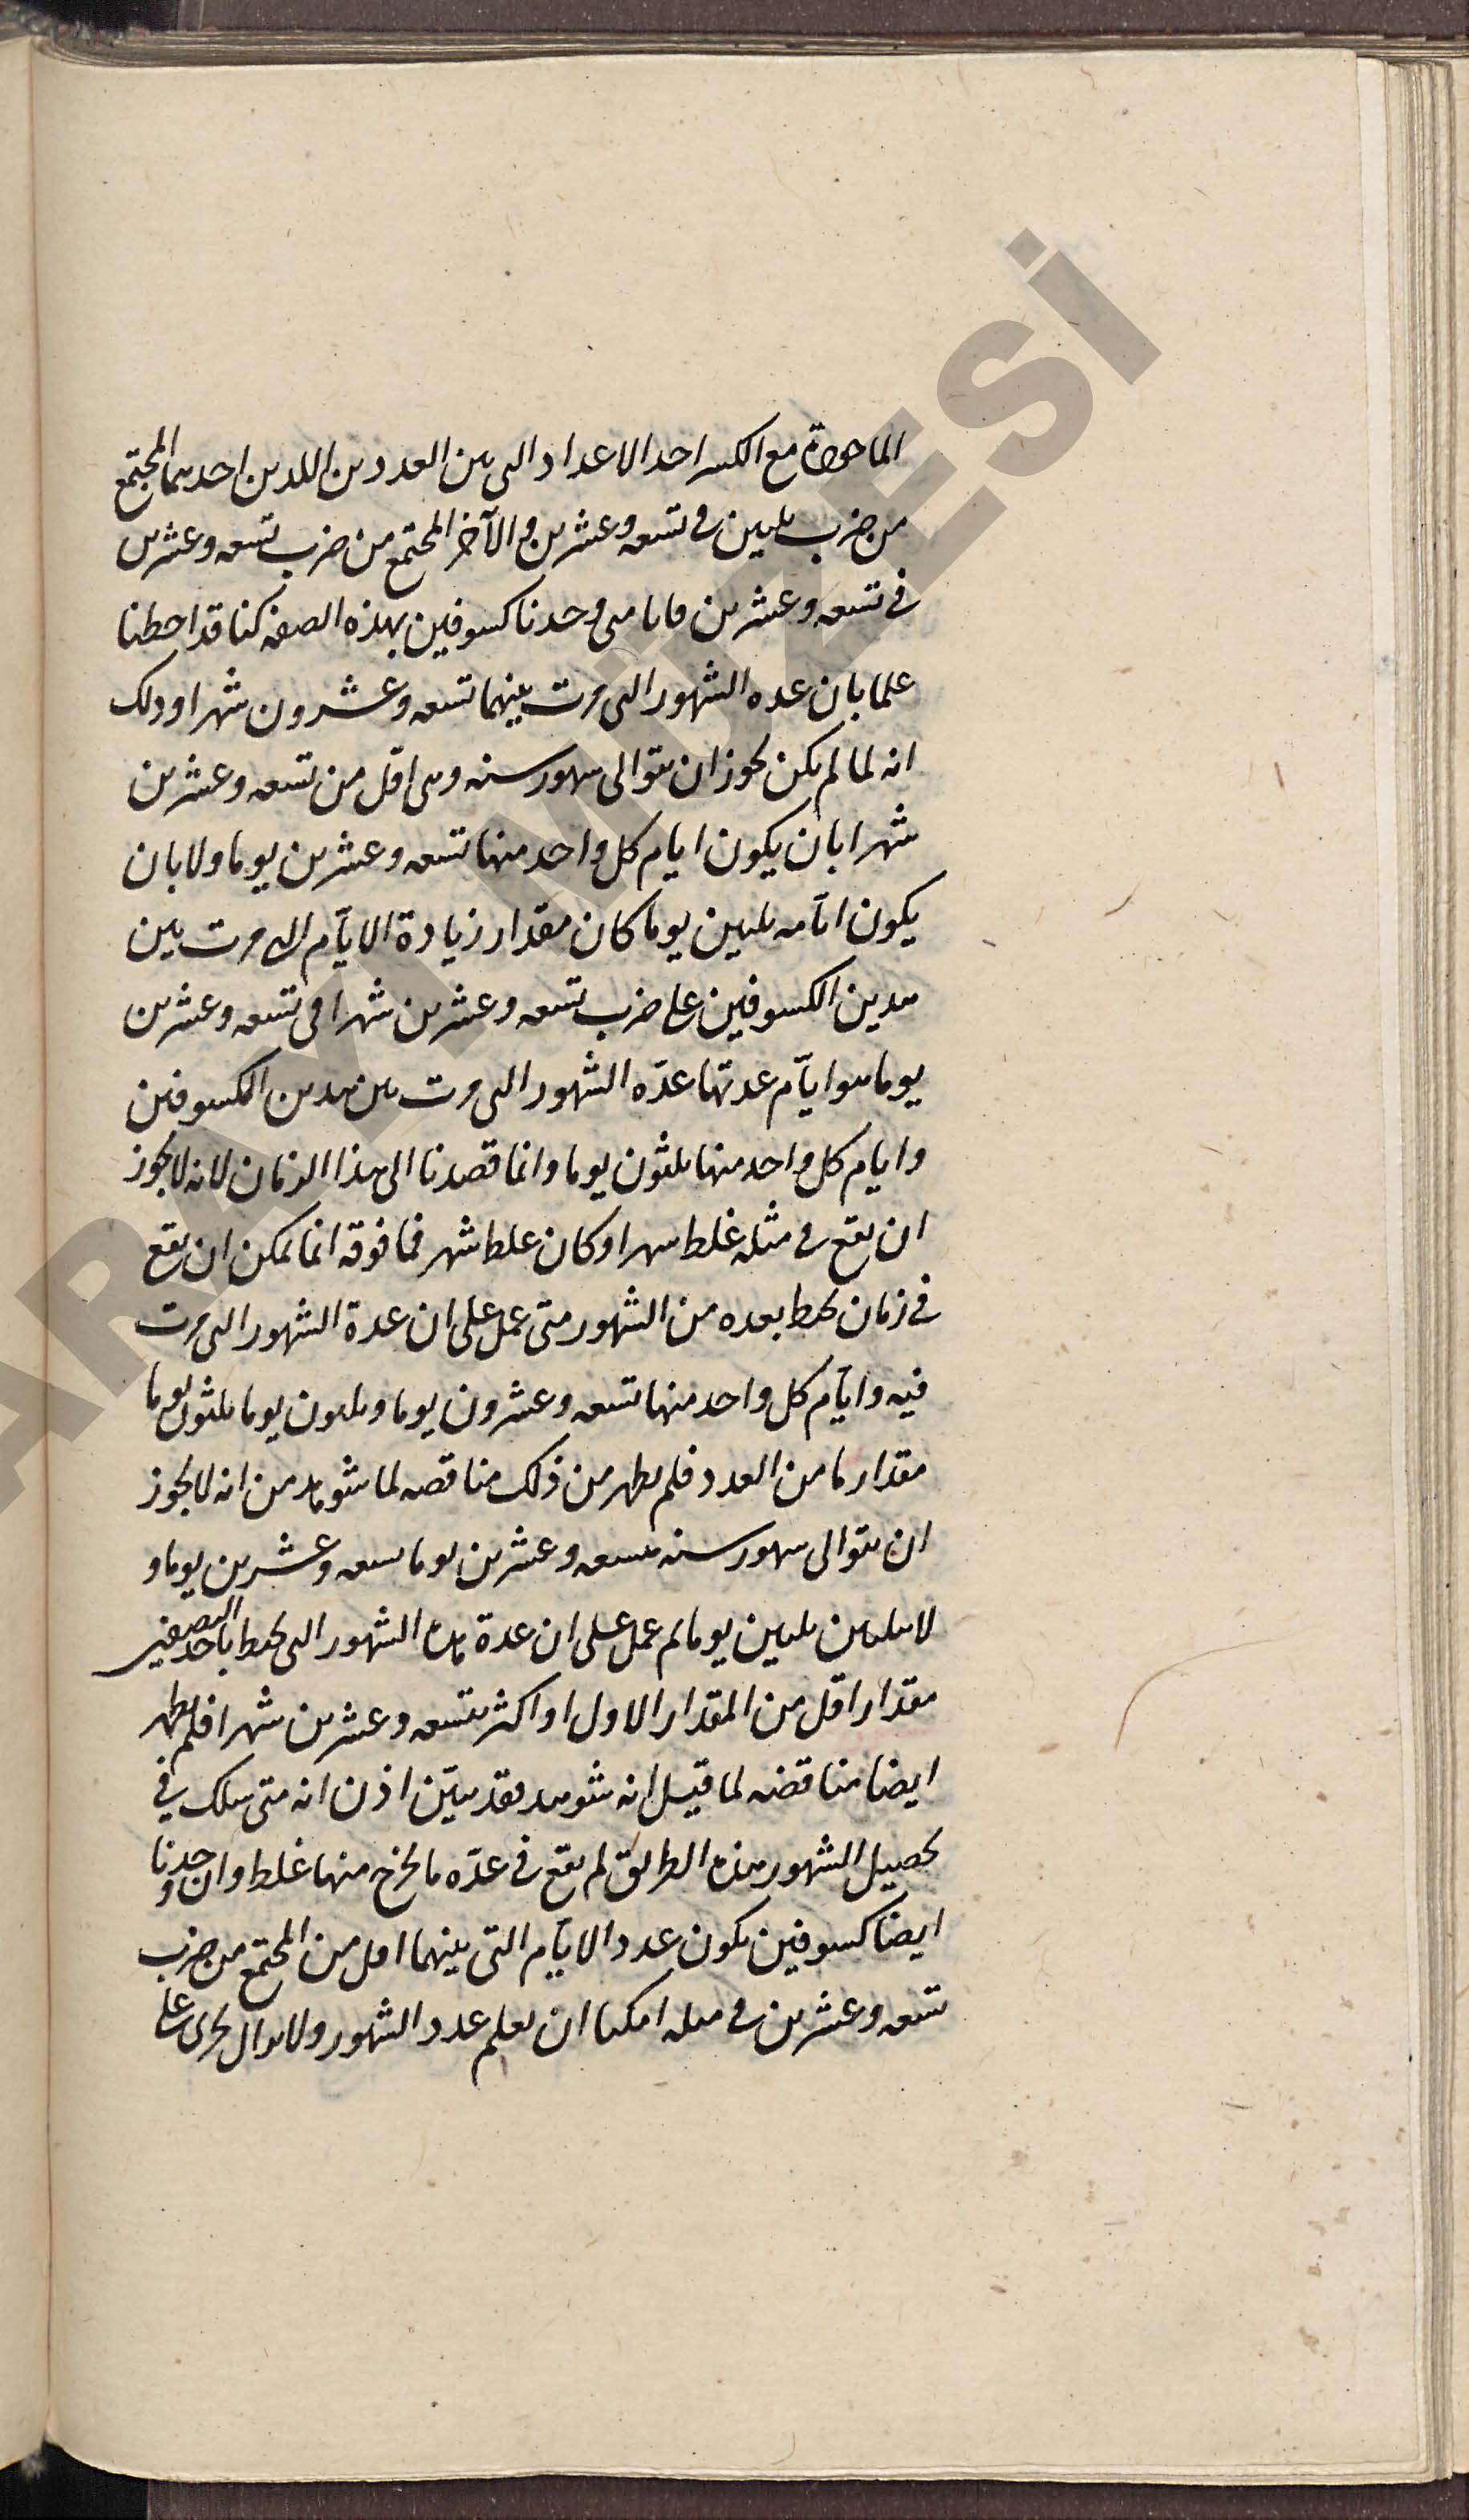 الماخوذة مع الكسر احد الاعداد التي بين العددين اللذين احدهما المجتمع
من ضرب ثلثين في تسعه وعشرين والآخر المجتمع من ضرب تسعه وعشرين
في تسعه وعشرين فانا متى وجدنا كسوفين بهذه الصفه كنا قد احطنا
علما بان عده الشهور التى مرت بينهما تسعه وعشرون شهرا وذلك
انه لما لم يكن يجوز ان يتوالى شهور سنه وهى اقل من تسعه وعشرين
شهرا بان يكون ايام كل واحد منها تسعه وعشرين يوما ولا بان
يكون ايامه ثلثين يوما كان مقدار زيادة الايام التى مرت بين
هذين الكسوفين على ضرب تسعه وعشرين شهرا فى تسعه وعشرين
يوما هو ايام عدتها عده الشهور التى مرت بين هذين الكسوفين
وايام كل واحد منها ثلثون يوما وانما قصدنا الى هذا الزمان لانه لا يجوز
ان يقع في مثله غلط شهر اذ كان غلط شهر فما فوقه انما يمكن ان يقع
في زمان يحيط بعده من الشهور متى عمل على ان عدة الشهور التى مرت
فيه وايام كل واحد منها تسعه وعشرون يوما وثلثون يوما ثلثون يوما
مقدار ما من العدد فلم يظهر من ذلك مناقضه لما شوهد من انه لا يجوز
ان يتوالى شهور سنه تسعه وعشرين يوما تسعه وعشرين يوما و
لا ثلثين ثلثين يوما ثم عمل على ان عدة هذه الشهور التى يحيط باحد الصنفين
مقدار اقل من المقدار الاول او اكثر بتسعه وعشرين شهرا فلم يظهر
ايضا مناقضه لما قيل انه شوهد فقد تبين اذن انه متى سلك في
تحصيل الشهور هذه الطريق لم يقع في عده ما يخرج منها غلط وان وجدنا
ايضا كسوفين يكون عدد الايام التى بينهما اقل من المجتمع من ضرب
تسعه وعشرين في مثله امكنا ان نعلم عدد الشهور ولا يزال يجرى على
ARAYI MÜZESİ